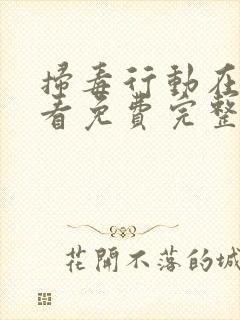 掃毒行動在
看免費完整
花開不落的城